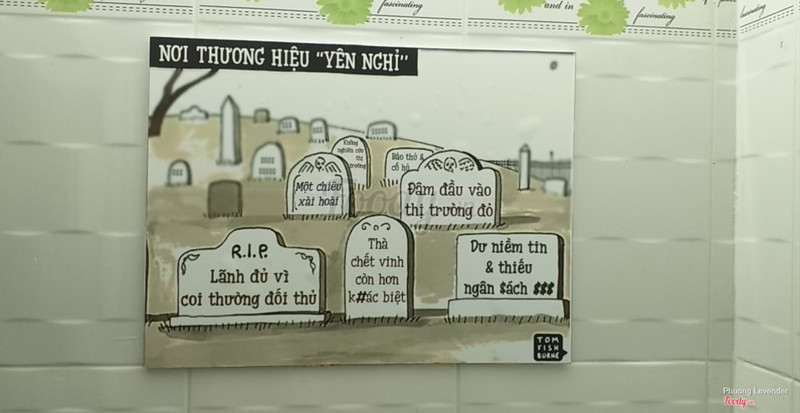 fascinating
and in
fascinating
fascinating
NƠI THƯƠNG HIỆU "YÊN NGHỈ"
Không
nghiên cứu
thị
trường
Bảo thủ &
cổ hủ
Một chiêu
xài hoài
Đâm đầu vào
thị trường đỏ
R.I.P.
Lãnh đủ vì
coi thường đối thủ
Thà
chết vinh
còn hơn
k#ác biệt
Dư niềm tin
& thiếu
ngân $ách $$$
TOM
FISH
BURNE
Phuong Lavender
foody.vn